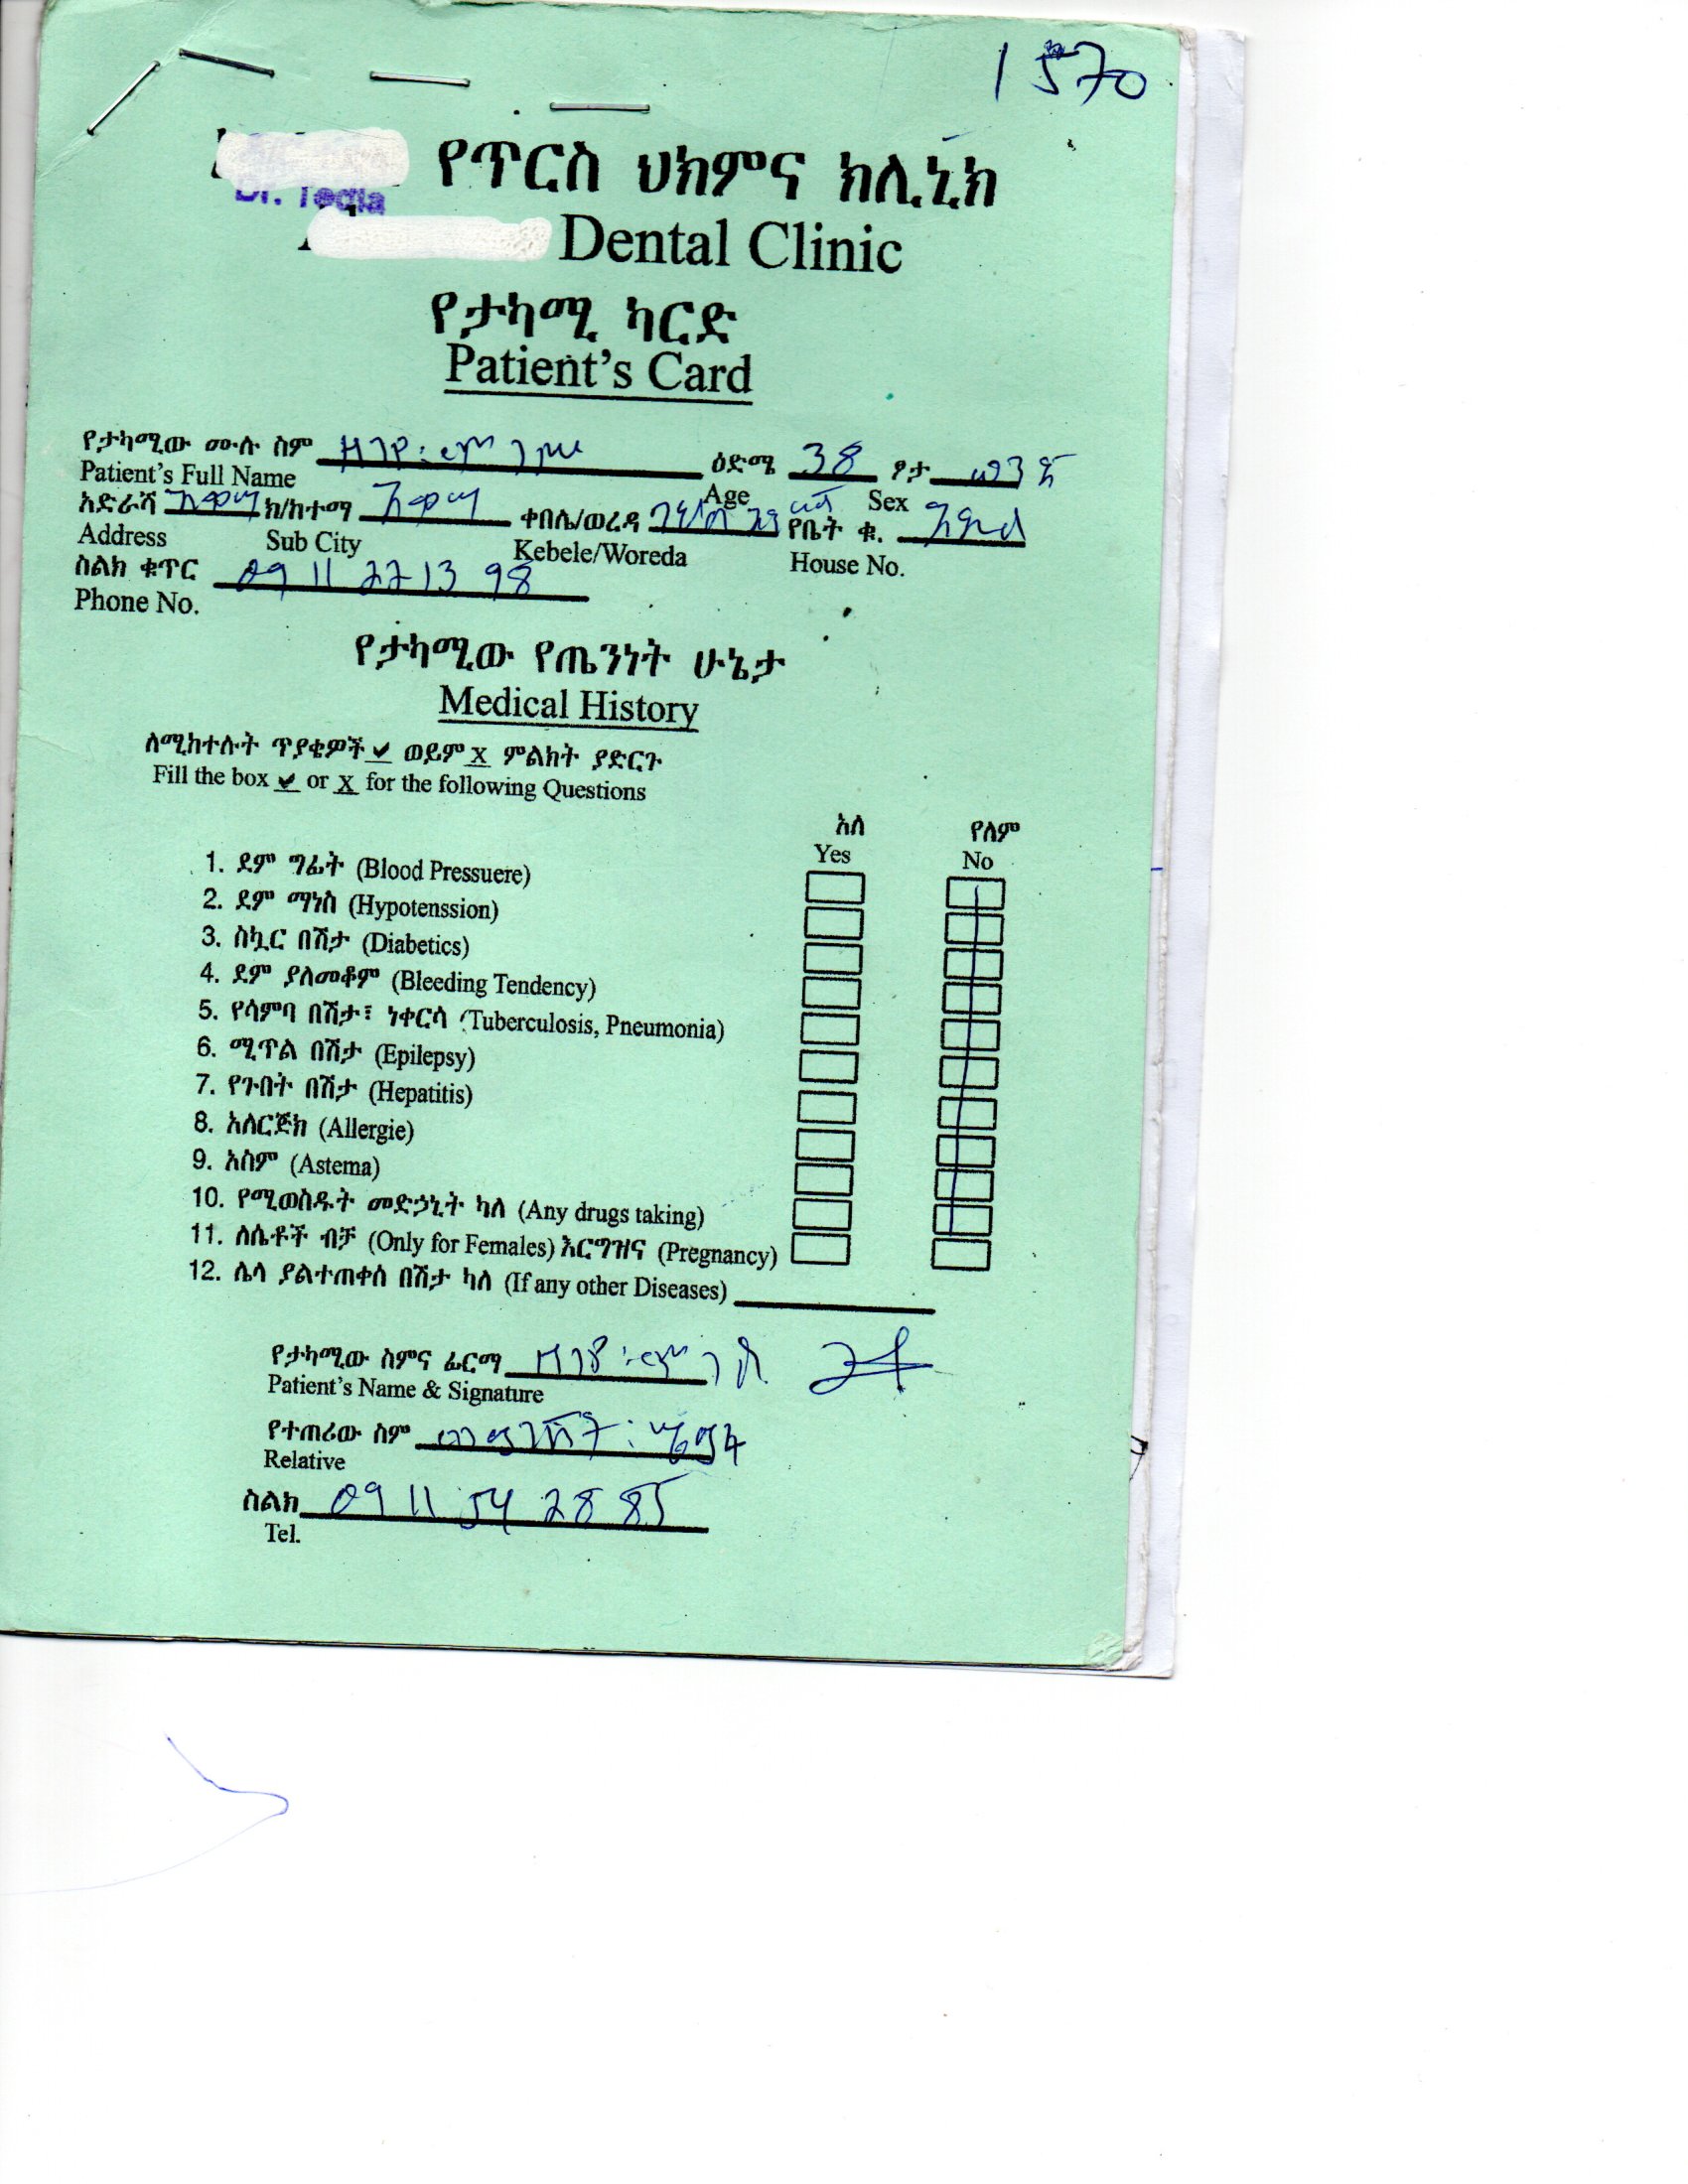 1570
የጥርስ ህክምና ክሊኒክ
Dr. Tedla
Dental Clinic
የታካሚ ካርድ
Patient's Card
የታካሚው ሙሉ ስም ዕድሜ 38 ፆታ ወንድ
Patient's Full Name Age Sex
አድራሻ ክ/ከተማ ቀበሌ/ወረዳ የቤት ቁ.
Address Sub City Kebele/Woreda House No.
ስልክ ቁጥር 09 11 22 13 98
Phone No.
የታካሚው የጤንነት ሁኔታ
Medical History
ለሚከተሉት ጥያቄዎች ✔ ወይም X ምልክት ያድርጉ
Fill the box ✔ or X for the following Questions
አለ የለም
Yes No
1. ደም ግፊት (Blood Pressuere)
2. ደም ማነስ (Hypotenssion)
3. ስኳር በሽታ (Diabetics)
4. ደም ያለመቆም (Bleeding Tendency)
5. የሳምባ በሽታ፣ ነቀርሳ (Tuberculosis, Pneumonia)
6. ሚጥል በሽታ (Epilepsy)
7. የጉበት በሽታ (Hepatitis)
8. አለርጅክ (Allergie)
9. አስም (Astema)
10. የሚወስዱት መድኃኒት ካለ (Any drugs taking)
11. ለሴቶች ብቻ (Only for Females) እርግዝና (Pregnancy)
12. ሌላ ያልተጠቀሰ በሽታ ካለ (If any other Diseases)
የታካሚው ስምና ፊርማ
Patient's Name & Signature
የተጠሪው ስም
Relative
ስልክ 09 11 54 28 85
Tel.